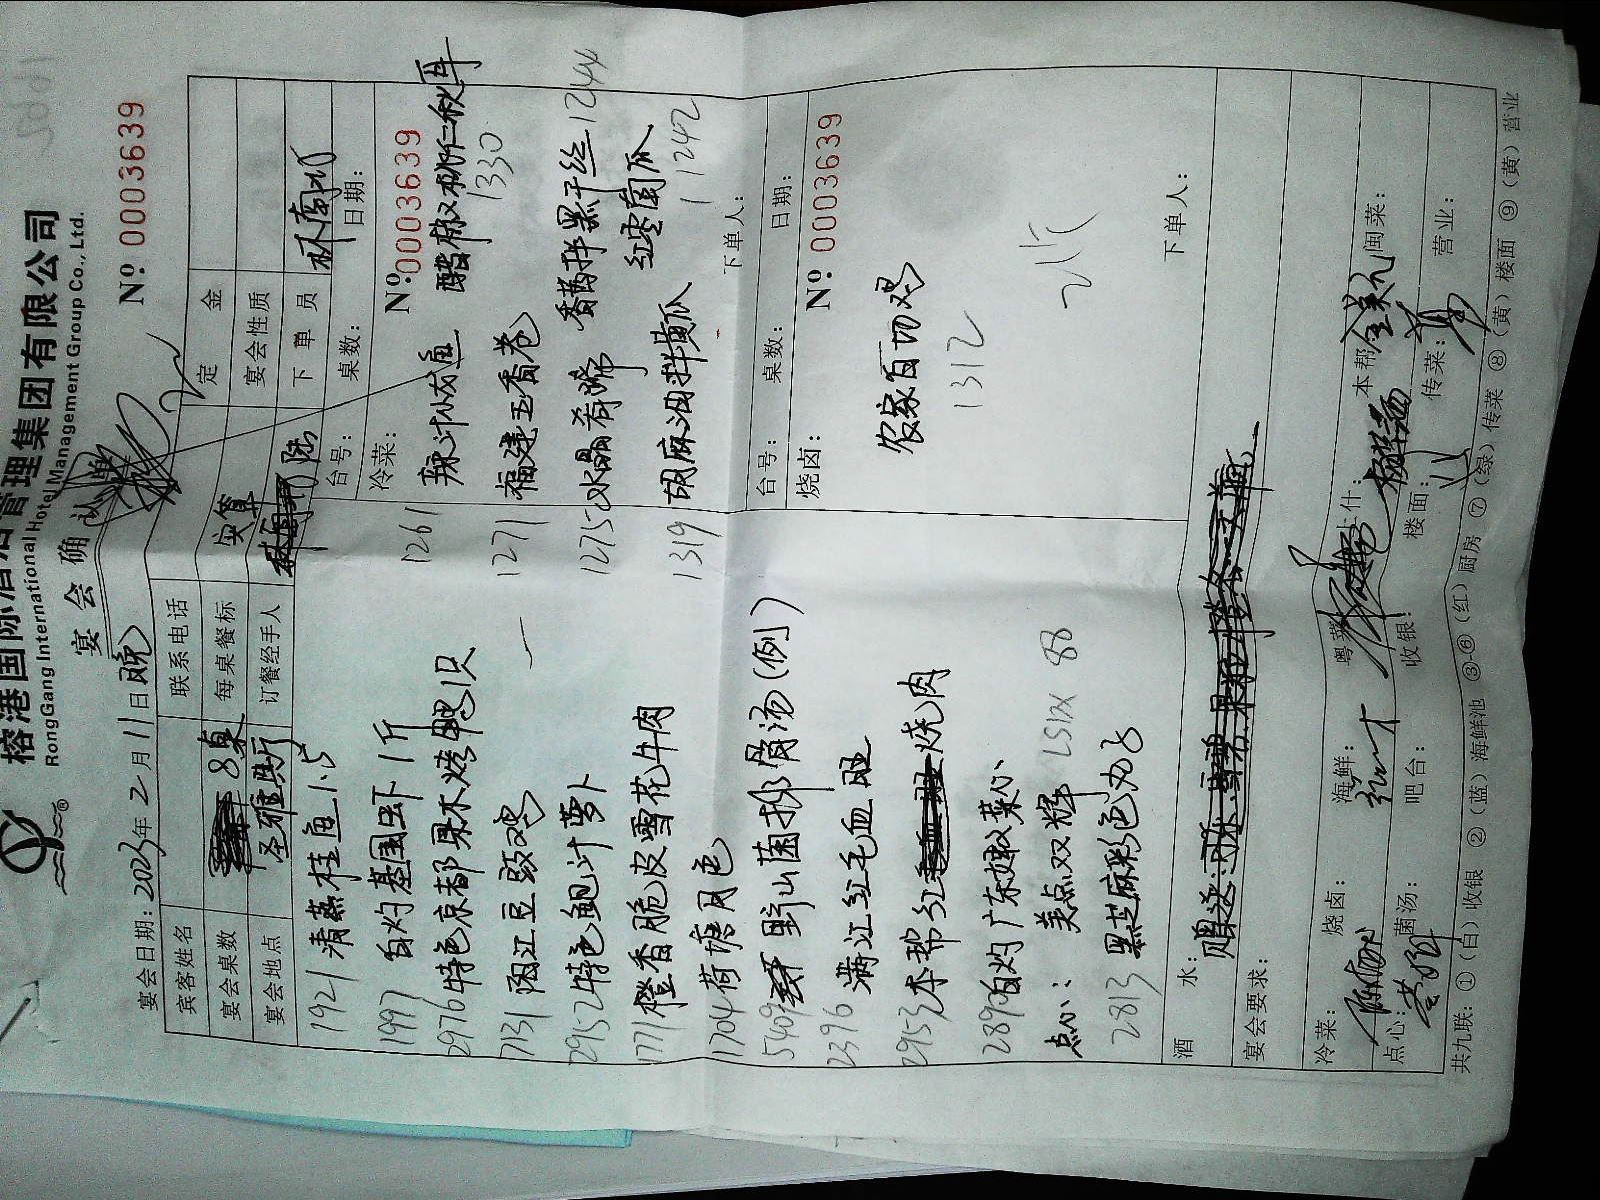 榕港国际酒店管理集团有限公司
RongGang International Hotel Management Group Co., Ltd.
宴会确认单
№ 0003639
宴会日期: 2023年2月11日 晚
宾客姓名 联系电话 定金
宴会桌数 8桌 每桌餐标 实算 宴会性质
宴会地点 圣雅厅 订餐经手人 陆 下单员 林南方
台号: 桌数: 日期:
1921 清蒸桂鱼1.5
1997 白灼基围虾1斤
2976 特色京都果木烤鸭1只
7131 阳江豆豉鸡
2952 特色鲍汁萝卜
1771 橙香脆皮雪花牛肉
1704 荷塘月色
5409 野山菌排骨汤(例)
2396 满江红毛血旺
2953 本帮红烧肉
2890 白灼广东嫩菜心
点心: 美点双辉 LS12X 88
2813 黑芝麻彩色丸子
冷菜: № 0003639
1261 辣汁浇鱼 醋椒桃仁秋耳
1330
1271 福建五香卷
1275 水晶肴蹄 香茜拌黑干丝 1244
1319 胡麻油拌黄瓜 红枣南瓜
1242
下单人:
台号: 桌数: 日期:
烧卤: № 0003639
农家白切鸡
1312
下单人:
酒水:
宴会要求:
冷菜: 烧卤: 海鲜: 粤菜: 上什: 本帮: 闽菜:
点心: 菌汤: 吧台: 收银: 楼面: 传菜: 营业:
共九联: ①(白)收银 ②(蓝)海鲜池 ③-⑥(红)厨房 ⑦(绿)传菜 ⑧(黄)楼面 ⑨(黄)营业